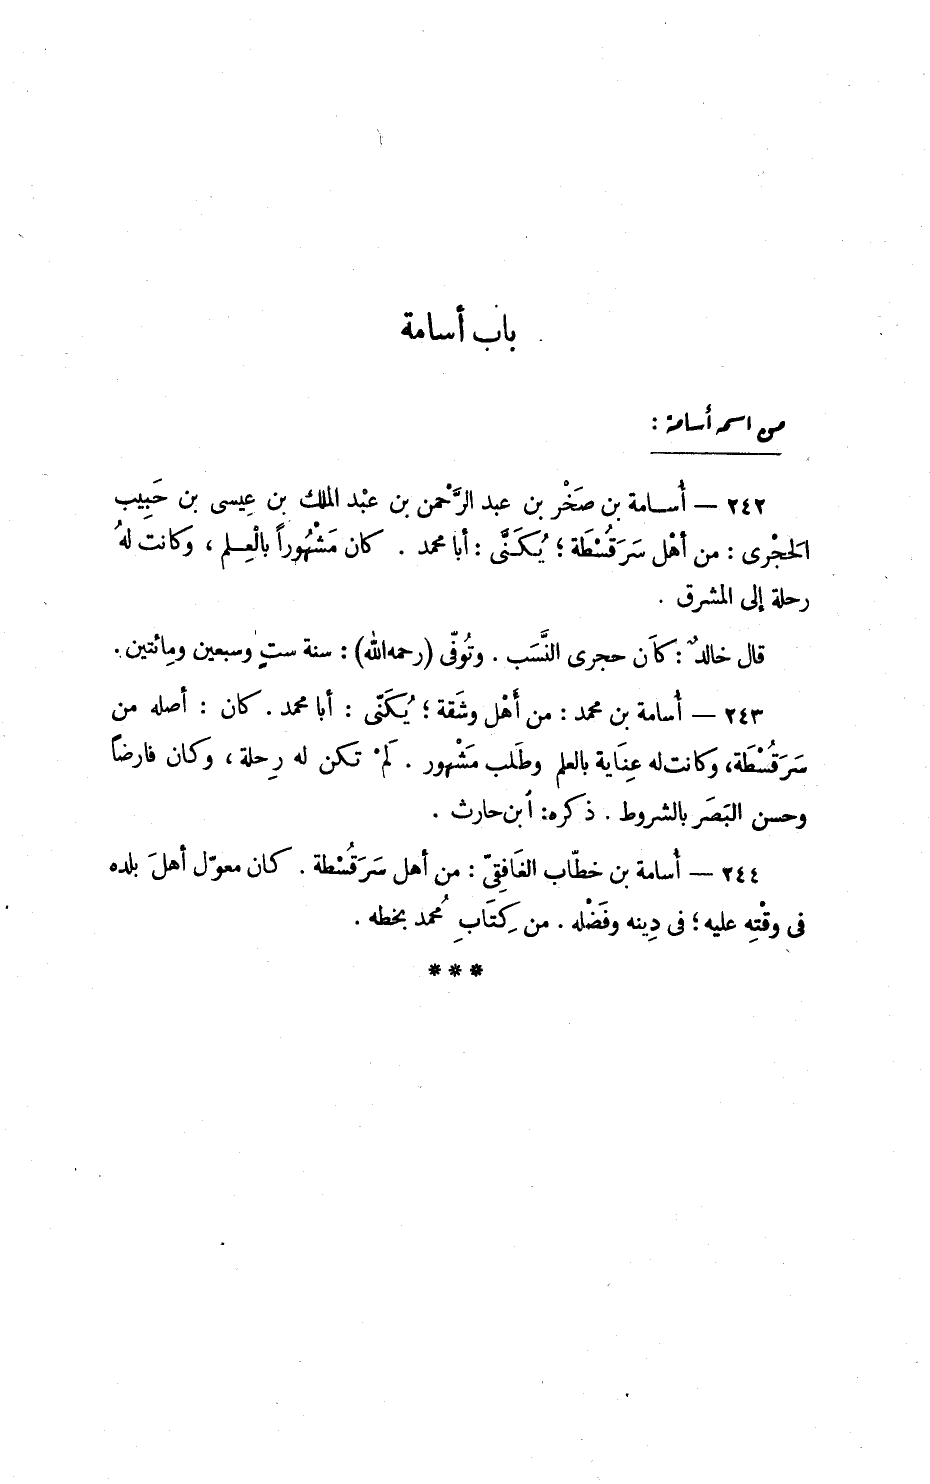 باب أسامة
من اسمه أسامة :
٢٤٢ — أُسـامة بن صَخْر بن عبد الرَّحْمن بن عبْد الملك بن عِيسى بن حَبِيب
الحَجْرى : من أهْل سَرَقُسْطَة ؛ يُكَنَّى : أبا محمد . كان مَشْهُوراً بالْعِـلم ، وكانت لهُ
رحلة إلى المشرق .
قال خالدٌ : كاَن حجرى النَّسَب . وتُوفّى (رحمه الله) : سنة ستٍ وسبعين ومِائتين .
٢٤٣ — أُسامة بن محمد : من أَهْل وشَقة ؛ يُكَنّى : أبا محمد . كان : أصله من
سَرَقُسْطَة، وكانت له عِنَاية بالعلم وطَلب مَشْهور . لَمْ تكن له رِحلة ، وكان فارضاً
وحسن البَصَر بالشروط . ذكره : أبن حارث .
٢٤٤ — أُسامة بن خطّاب الغَافِقِيّ : من أهل سَرَقُسْطة . كان معوّل أهلَ بلده
فى وقْتِه عليه ؛ فى دِينه وفَضْله . من كِتَابِ مُحمد بخطه .
***